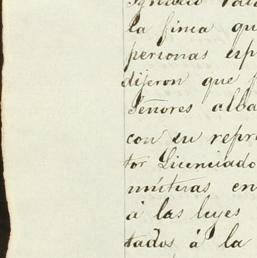 Ignacio
la finca qu
personas esp
dijeron que f
Señores alba
con su repre
tor Licenciado
mínteras en
á las leyes
tados á la